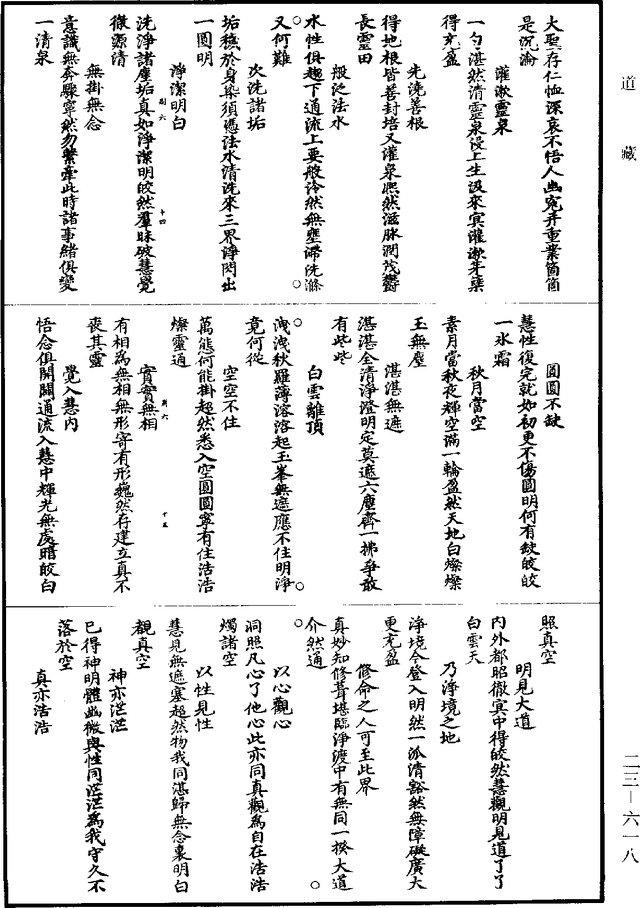 大聖存仁恤深哀不悟人幽冤并重業箇箇
是沉淪
灌漱靈泉
一勺湛然清靈泉浸上生汲來冥灌漱芽蘖
得充盈
先澆善根
得地根皆善封培又灌泉熙然滋脉潤茂鬱
長靈田
般泛法水
水性俱趨下通流上要般泠然無壅滯洗滌
又何難
次洗諸垢
垢穢於身染須憑法水清洗來三界淨閃出
一圓明
淨潔明白
洗淨諸塵垢真如淨潔明皎然羣昧破慧覺
徹源清
無掛無念
意識無奔驟寧然勿繫牽此時諸事緒俱變
一清泉
圓圓不缺
慧性復完就如初更不傷圓明何有缺皎皎
一氷霜
秋月當空
素月當秋夜輝空滿一輪盈然天地白燦燦
玉無塵
湛湛無遮
湛湛全清淨澄明定莫遮六塵齊一拂爭敢
有些些
白雲離頂
洩洩秋羅薄溶溶起玉峯無遮應不住明淨
竟何從
空空不住
萬態何能掛超然悉入空圓圓寧有住浩浩
燦靈通
實實無相
有相為無相無形寄有形巍然存建立真不
喪其靈
覺入慧內
悟念俱開闢通流入慧中輝光無處暗皎白
照真空
明見大道
內外都昭徹冥中得皎然慧觀明見道了了
白雲天
乃淨境之地
淨境今登入明然一派清豁然無障礙廣大
更充盈
修命之人可至此界
真妙知修葺堪臨淨渡中有無同一揆大道
介然通
以心觀心
洞照凡心了他心此亦同真觀為自在浩浩
燭諸空
以性見性
慧見無遮塞超然物我同湛歸無念裏明白
覩真空
神亦茫茫
已得神明體幽微與性同茫茫為我守久不
落於空
真亦浩浩
道藏
二三—六一八